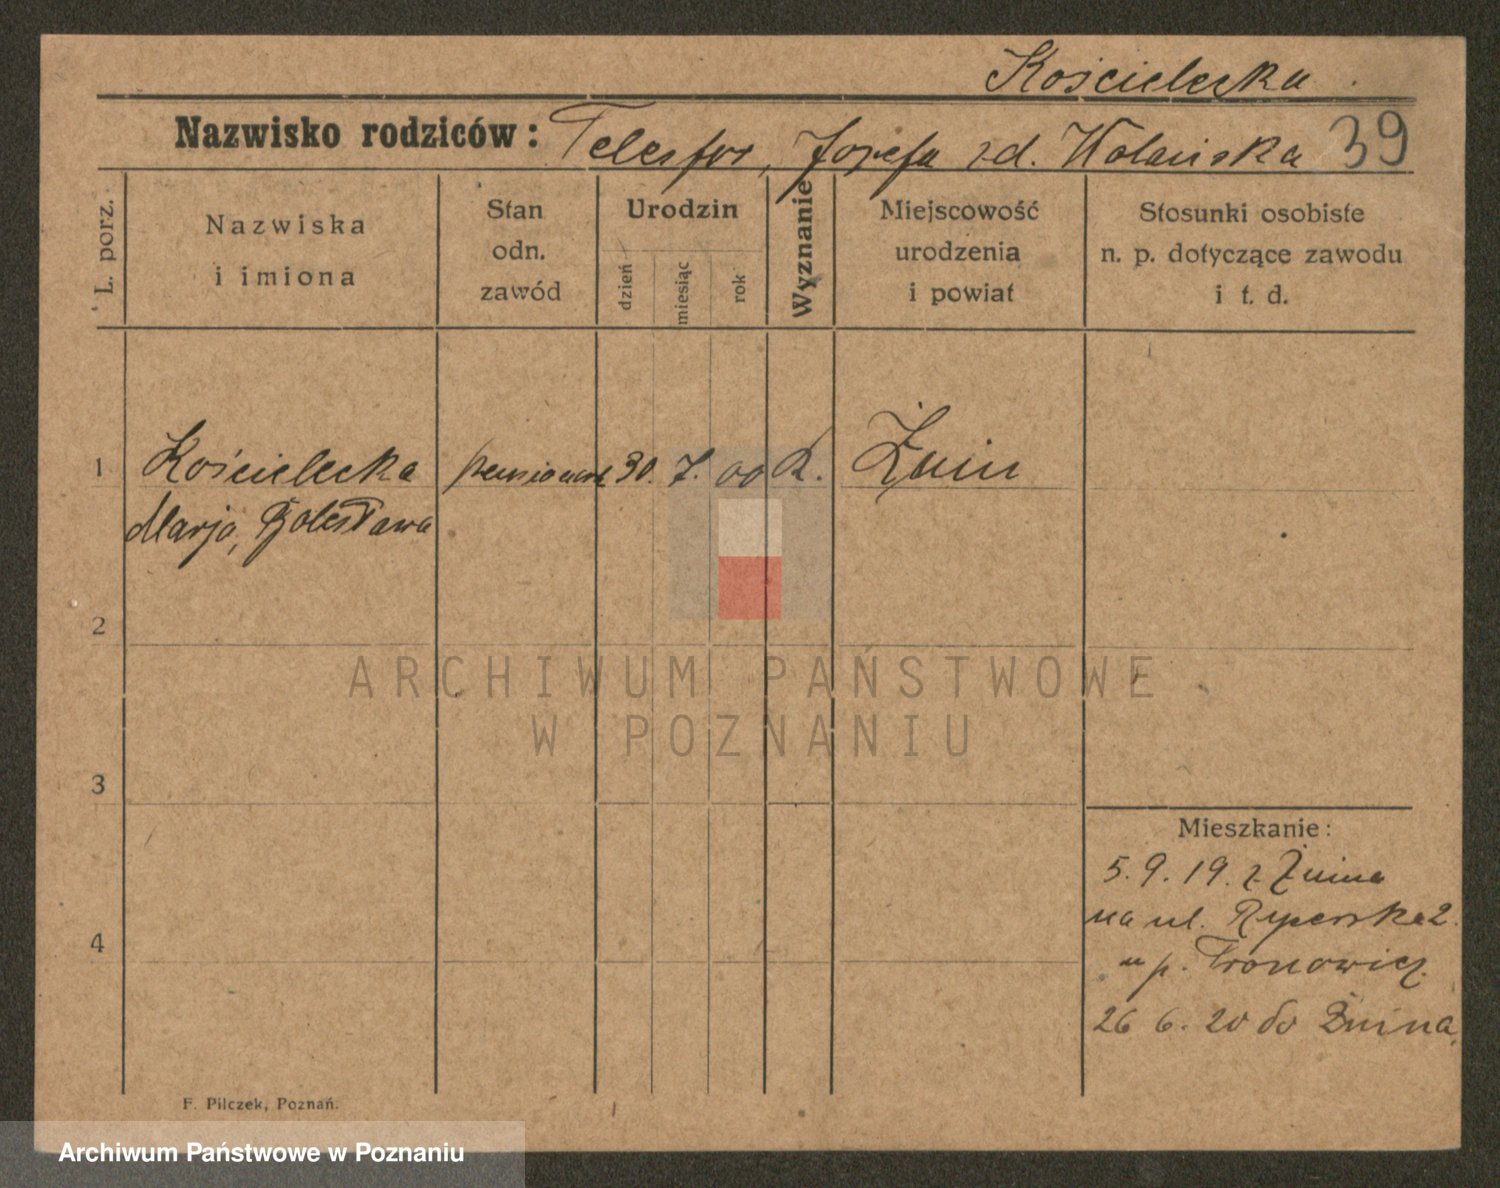 Kościelecka
Nazwisko rodziców: Telesfor, Józefa zd. Wolańska 39
L. porz.
Nazwiska
i imiona
Stan
odn.
zawód
Urodzin
dzień
miesiąc
rok
Wyznanie
Miejscowość
urodzenia
i powiat
Stosunki osobiste
n. p. dotyczące zawodu
i t. d.
1
Kościelecka
Marja, Bolesława
30. 7. 00 R. Żnin
2
3
4
Mieszkanie:
5. 9. 19. z Żnina
na ul. Rycerska 2.
p. Tronowicz.
26 6. 20 do Żnina
F. Pilczek, Poznań.
ARCHIWUM PAŃSTWOWE
W POZNANIU
Archiwum Państwowe w Poznaniu